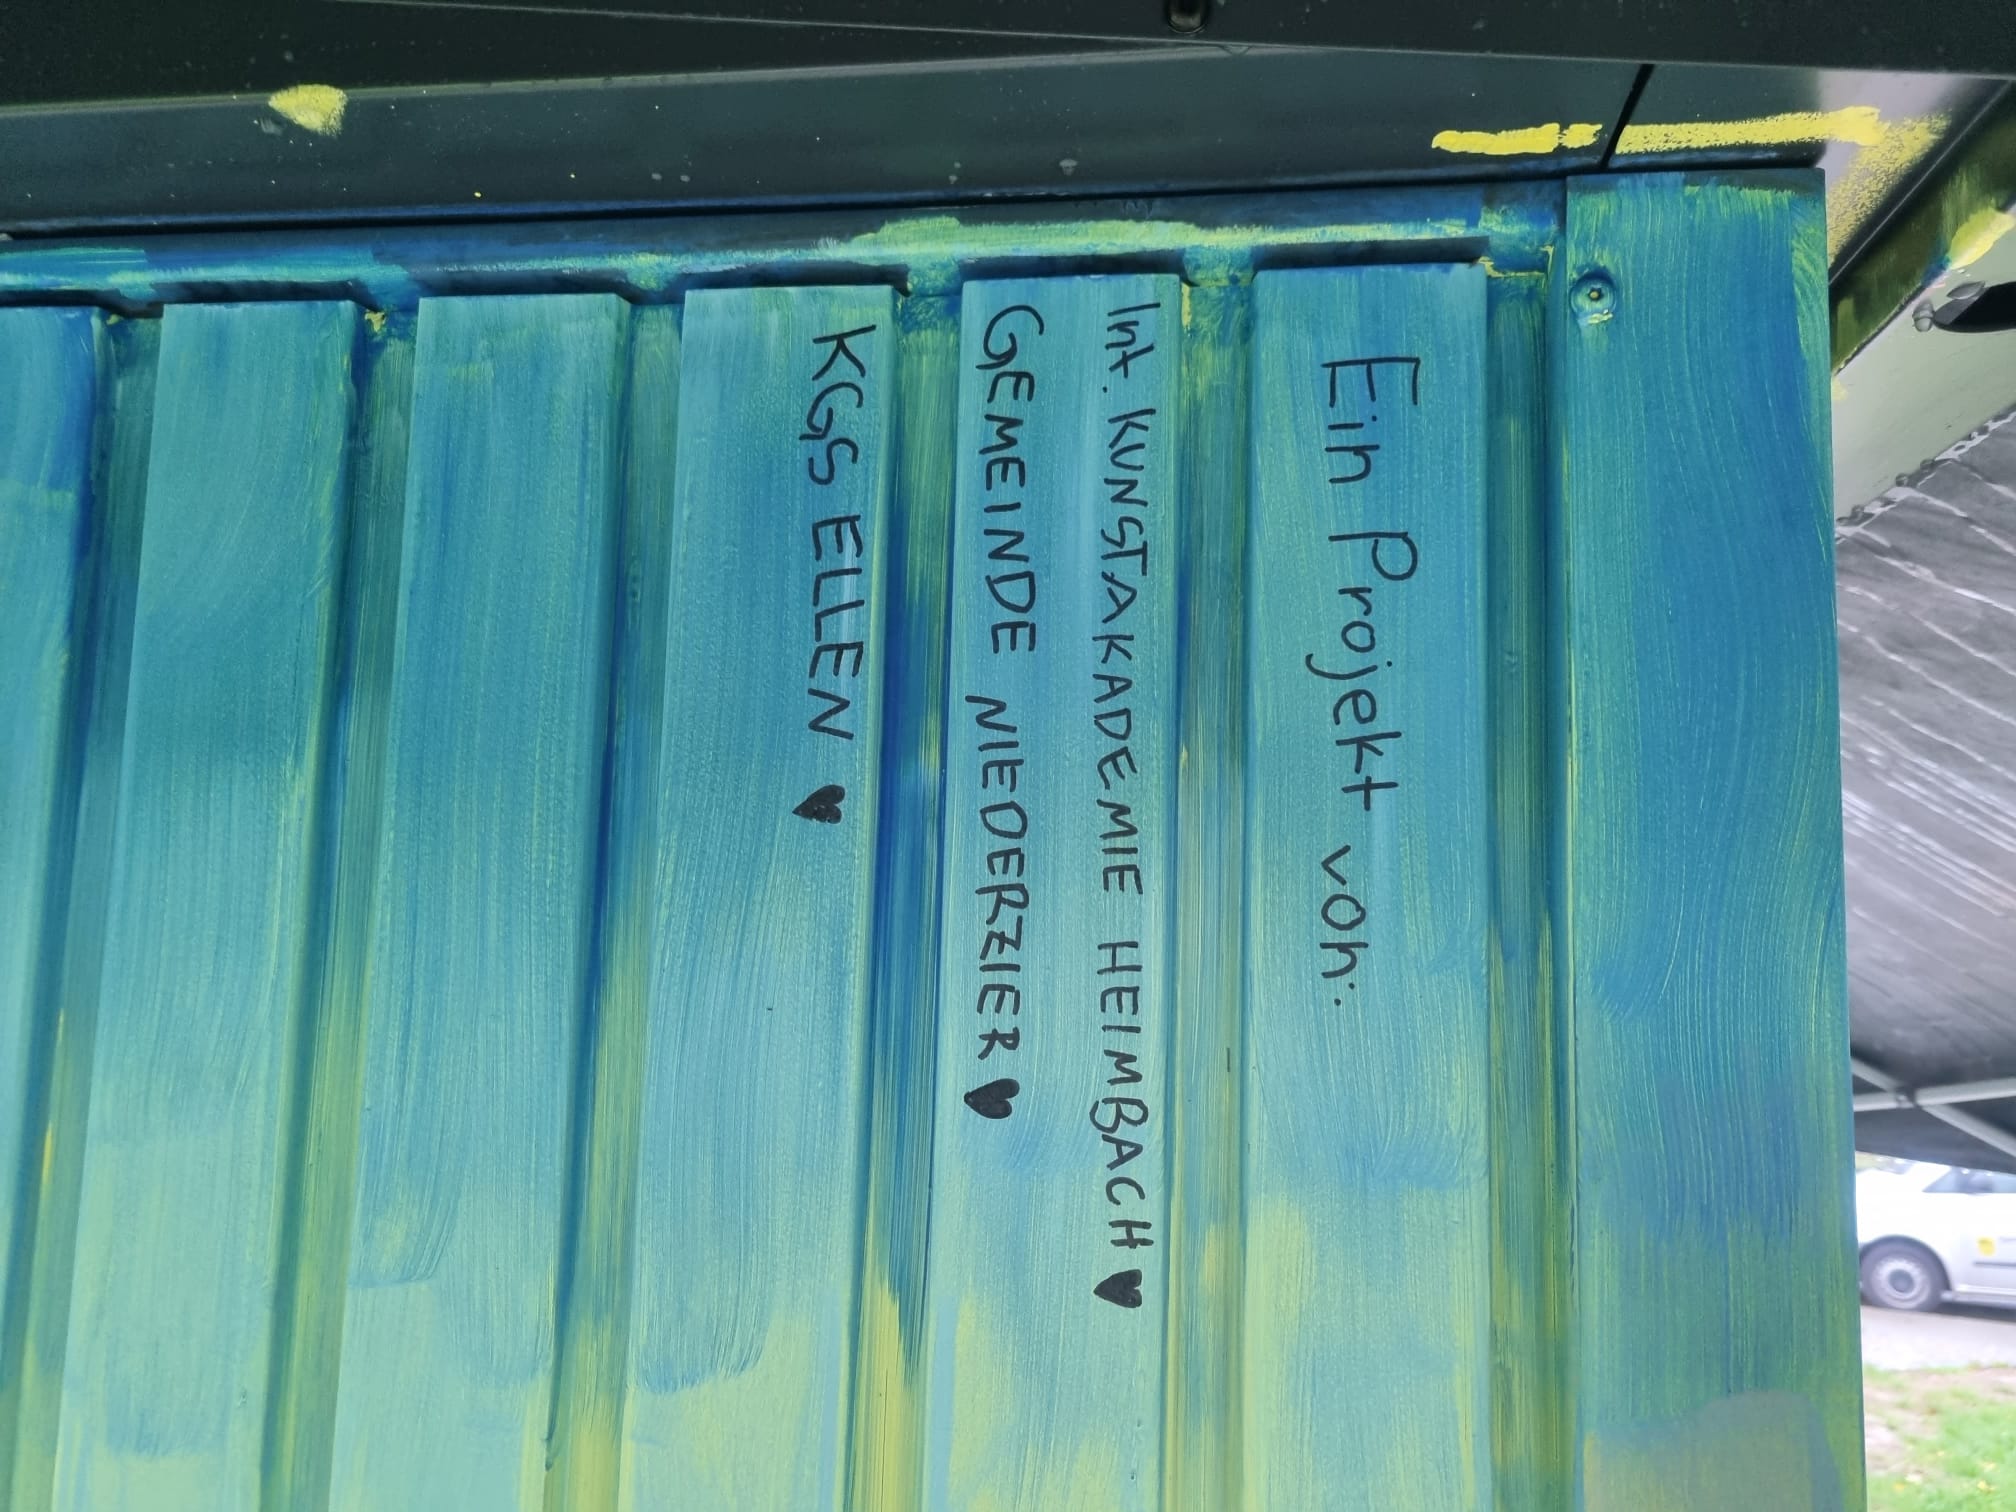 Ein Projekt von:
Int. KUNSTAKADEMIE HEIMBACH ♥
GEMEINDE NIEDERZIER ♥
KGS ELLEN ♥